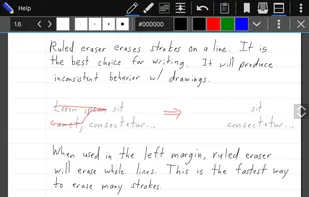 Help
1.6 #000000
Ruled eraser erases strokes on a line. It is
the best choice for writing. It will produce
inconsistent behavior w/ drawings.
Lorem ipsum sit ⇒ sit
amet, consectetur... consectetur...
When used in the left margin, ruled eraser
will erase whole lines. This is the fastest way
to erase many strokes.